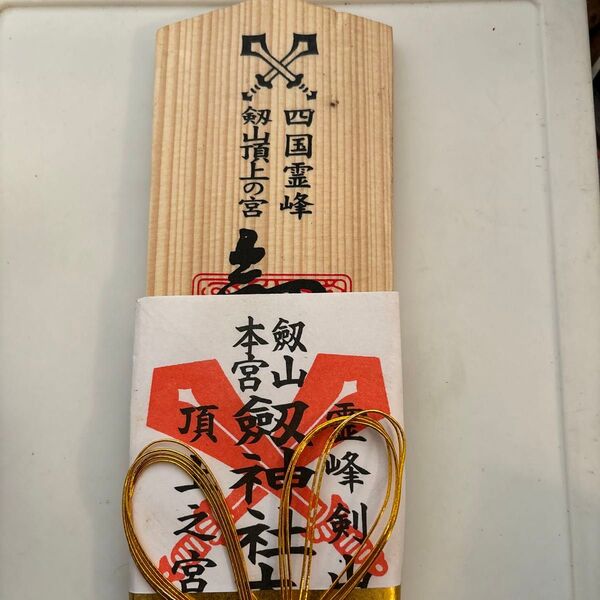 四国霊峰
劔山頂上の宮
霊峰剣山
劔山
本宮
劔神社
劔神社
頂上之宮